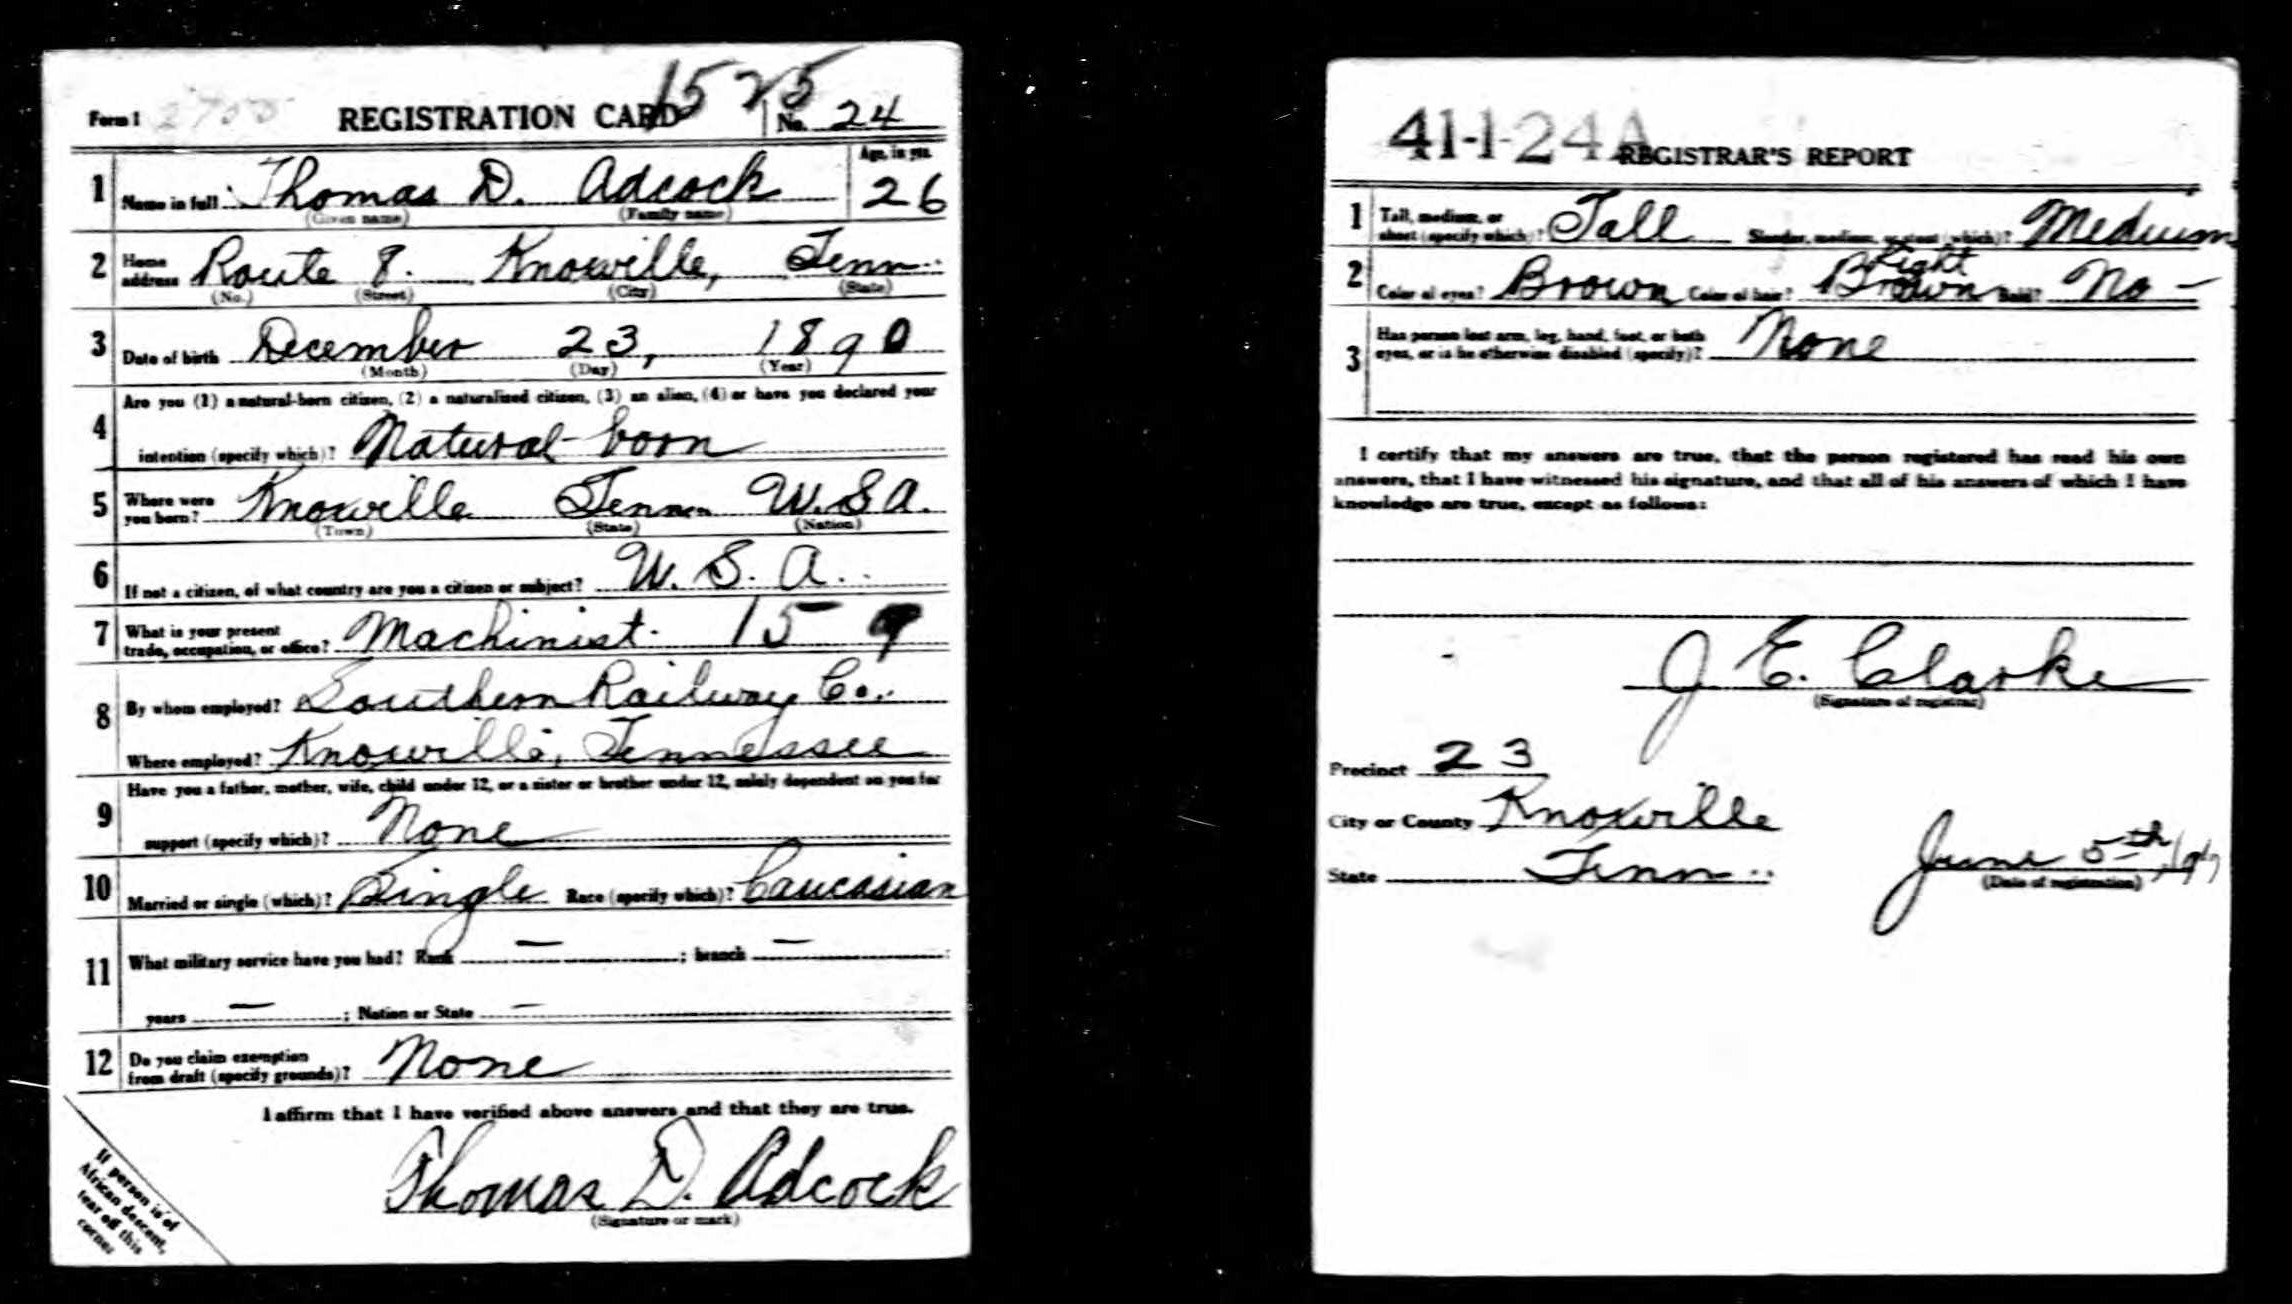 1525
Form 1 2700 REGISTRATION CARD No. 24
1 Name in full Thomas D. Adcock Age, in yrs. 26
(Given name) (Family name)
2 Home address Route 8. Knoxville, Tenn.
(No.) (Street) (City) (State)
3 Date of birth December 23, 1890
(Month) (Day) (Year)
4 Are you (1) a natural-born citizen, (2) a naturalized citizen, (3) an alien, (4) or have you declared your
intention (specify which)? Natural-born
5 Where were you born? Knoxville Tenn U.S.A.
(Town) (State) (Nation)
6 If not a citizen, of what country are you a citizen or subject? U. S. A.
7 What is your present trade, occupation, or office? Machinist. 15 9
8 By whom employed? Southern Railway Co.
Where employed? Knoxville, Tennessee
9 Have you a father, mother, wife, child under 12, or a sister or brother under 12, solely dependent on you for
support (specify which)? None
10 Married or single (which)? Single Race (specify which)? Caucasian
11 What military service have you had? Rank — ; branch —
years — ; Nation or State —
12 Do you claim exemption from draft (specify grounds)? None
I affirm that I have verified above answers and that they are true.
Thomas D. Adcock
(Signature or mark)
If person is of
African descent,
tear off this
corner
41-1-24 A REGISTRAR'S REPORT
1 Tall, medium, or short (specify which)? Tall Slender, medium, or stout (which)? Medium
2 Color of eyes? Brown Color of hair? Light Brown Bald? No -
3 Has person lost arm, leg, hand, foot, or both eyes, or is he otherwise disabled (specify)? None
I certify that my answers are true, that the person registered has read his own
answers, that I have witnessed his signature, and that all of his answers of which I have
knowledge are true, except as follows:
J. E. Clarke
(Signature of registrar)
Precinct 23
City or County Knoxville
State Tenn. June 5th, 1917
(Date of registration)